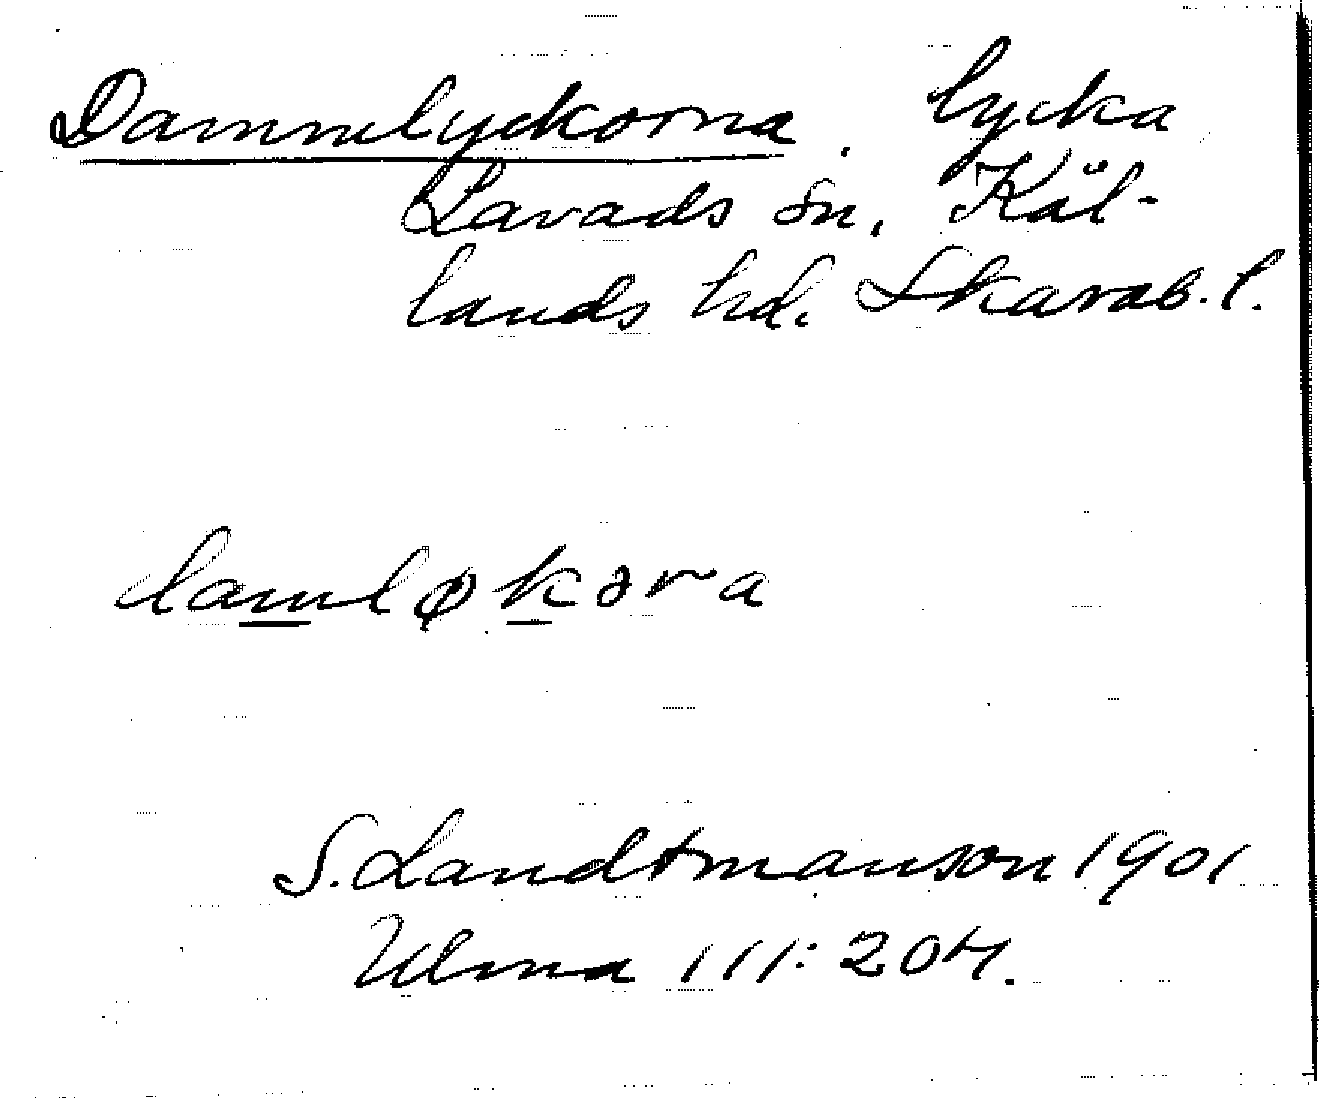 Dammlyckorna. lycka
Lavads sn. Kål-
lands hd. Skarab. l.
damløkǝra
S. Landtmanson 1901
Ulma 111:204.